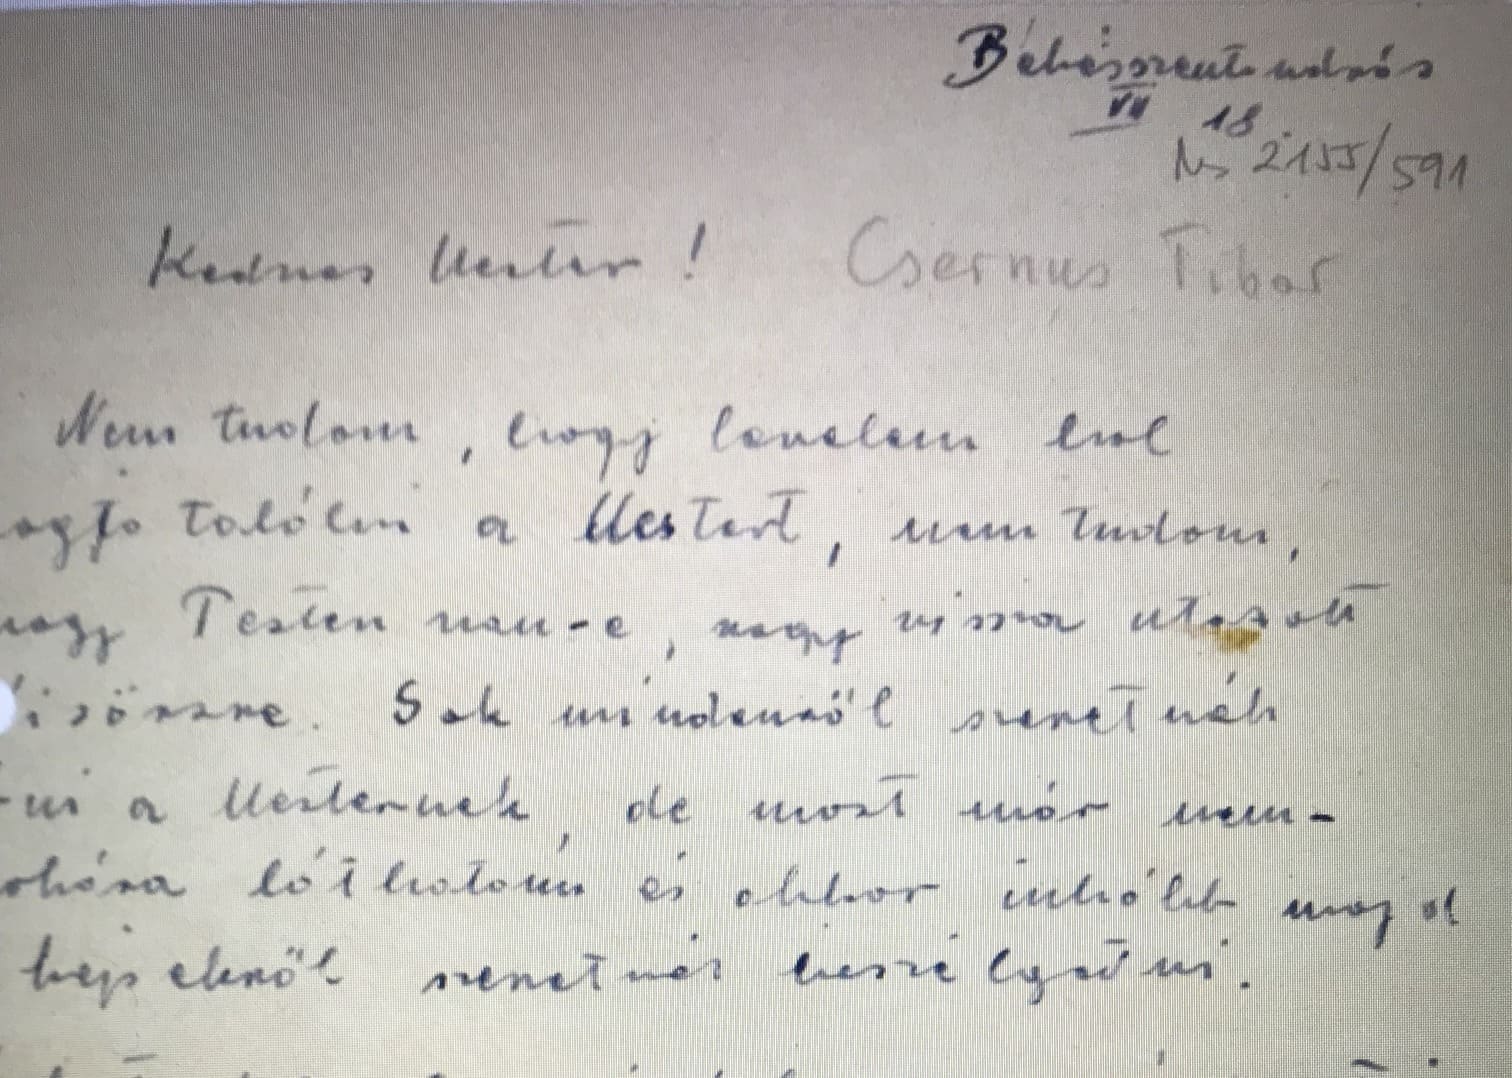 Békésszentandrás
VII 18.
Ms 2155/591
Kedves Mester! Csernus Tibor
Nem tudom, hogy levelem hol
fog találni a Mestert, nem tudom,
hogy Pesten van-e, vagy vissza utazott
Sok mindenről szeretnék
ni a Mesternek, de most már nem-
sokára láthatom és akkor inkább majd
képekről szeretnék beszélgetni.